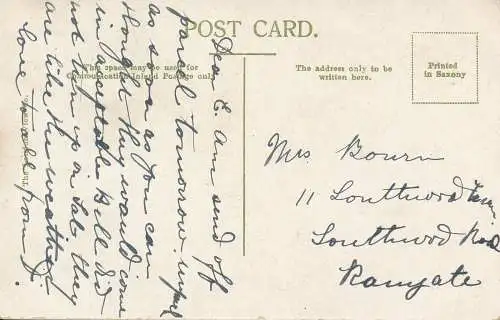 POST CARD.
This space may be used for
Communication Inland Postage only.
The address only to be
written here.
Printed
in Saxony
Dear E. Am send off
parcel tomorrow. unpack
as soon as you can
thought they would come
in acceptable Bill did
not turn up on Sat. they
are like the weather
love to all from
Mrs Bourn
11 Southwood
Southwood Rd
Ramgate